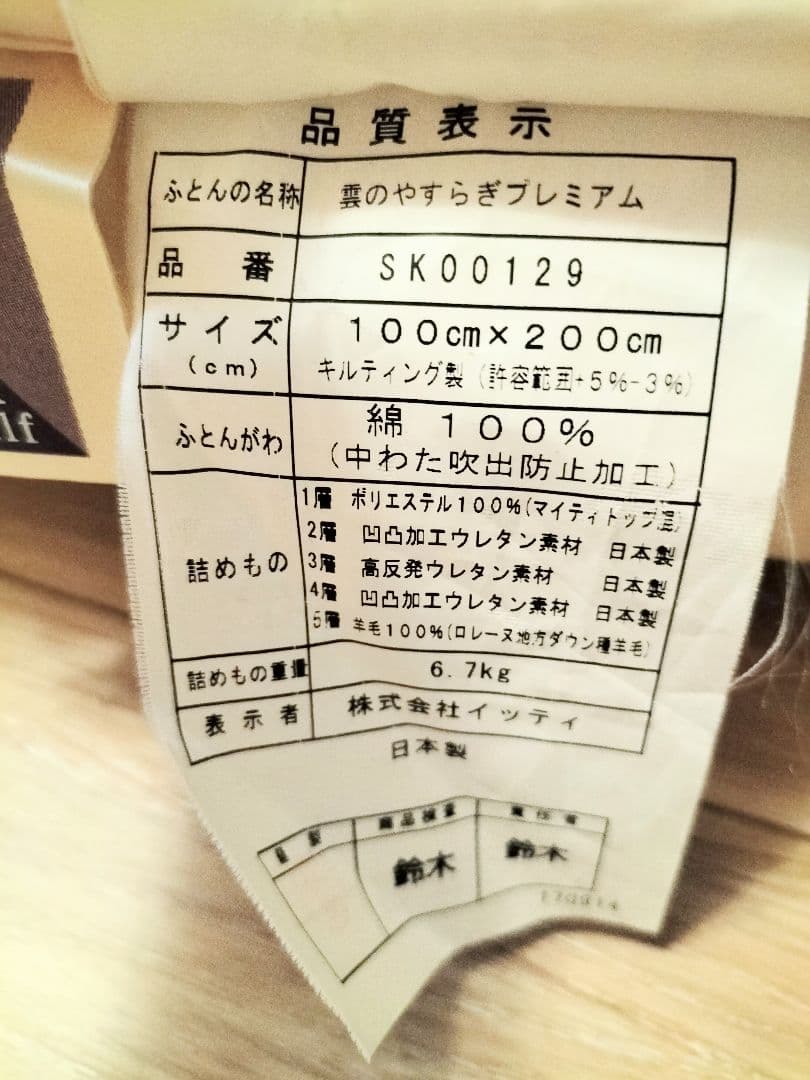 品質表示
ふとんの名称 雲のやすらぎプレミアム
品番 SK00129
サイズ 100cm×200cm
(cm) キルティング製(許容範囲+5%-3%)
ふとんがわ 綿 100%
(中わた吹出防止加工)
1層 ポリエステル100%(マイティトップ混)
2層 凹凸加工ウレタン素材 日本製
詰めもの 3層 高反発ウレタン素材 日本製
4層 凹凸加工ウレタン素材 日本製
5層 羊毛100%(ロレーヌ地方ダウン種羊毛)
詰めもの重量 6.7kg
表示者 株式会社イッティ
日本製
商品検査 責任者
鈴木 鈴木
lf